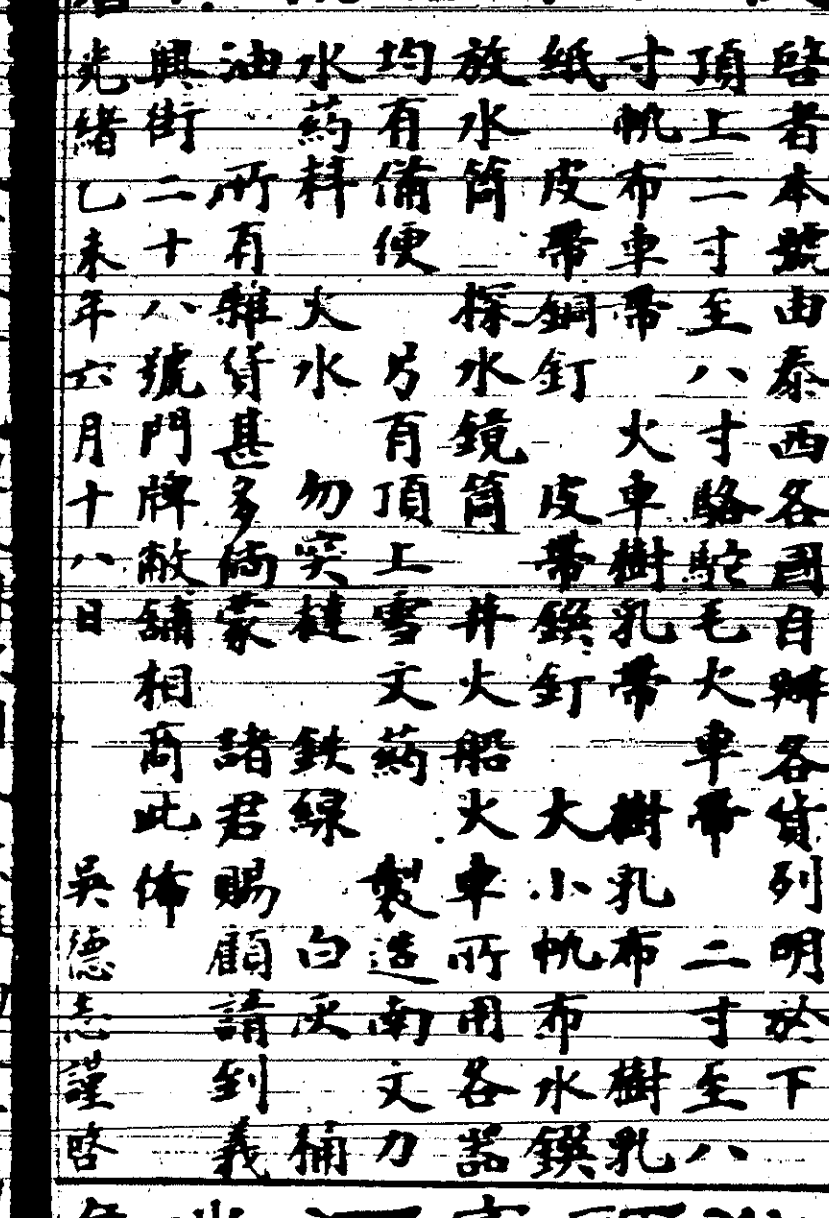 啓者本號由泰西各國自辦各貨列明於下
頂上二寸至八寸駱駝毛火車帶 二寸至八
寸帆布車帶 火車樹乳帶 樹乳布 樹乳
紙 皮帶銅釘 皮帶鏌釘 大小帆布水鏌
放水筒 探水鏡筒 井火船火車所用各器
均有備便 另有頂上雪文藥 製造南文力
水藥料 火水 勿突槤 鉄線 白灰 桶
油 所有雜貨甚多倘蒙 諸君賜顧請到義
興街二十八號門牌敝舖相商此佈
光緒乙未年六月十八日 吳德志謹啓